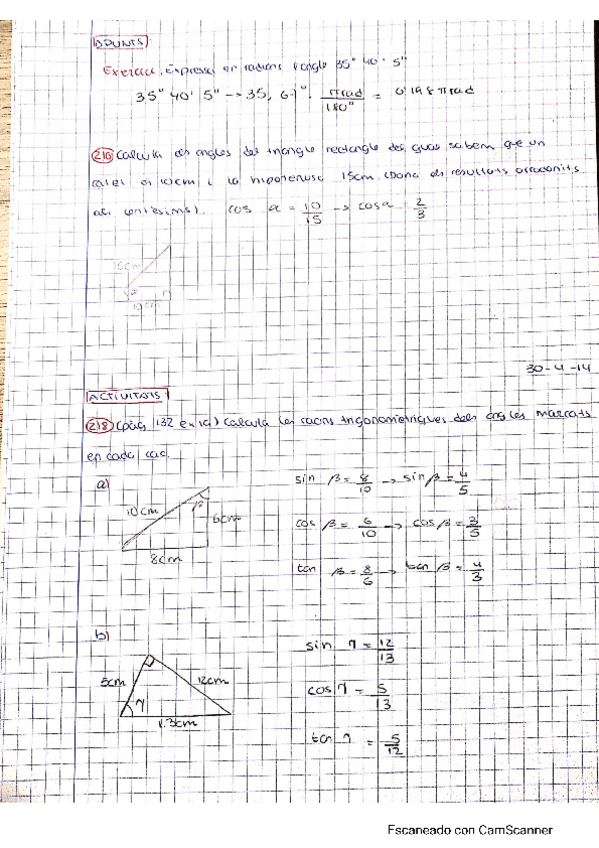 APUNTS
Exercici. Expressa en radians l'angle 35° 40' 5"
35° 40' 5" --> 35, 67° · πrad / 180° = 0'198 πrad
216 Calcula els angles del triangle rectangle del qual sabem que un
catet és 10cm i la hipotenusa 15cm (dona els resultats arrodonits
als centèsims). cos α = 10/15 -> cos α 2/3
15cm
α
10cm
30-4-14
ACTIVITATS
218 (pàg 132 ex 1a) Calcula les raons trigonomètriques dels angles marcats
en cada cas.
a)
sin β = 8/10 -> sin β = 4/5
10cm β 6cm
cos β = 6/10 -> cos β = 3/5
8cm
tan β = 8/6 -> tan β = 4/3
b)
sin γ = 12/13
5cm 12cm
cos γ = 5/13
γ
13cm
tan γ = 5/12
Escaneado con CamScanner